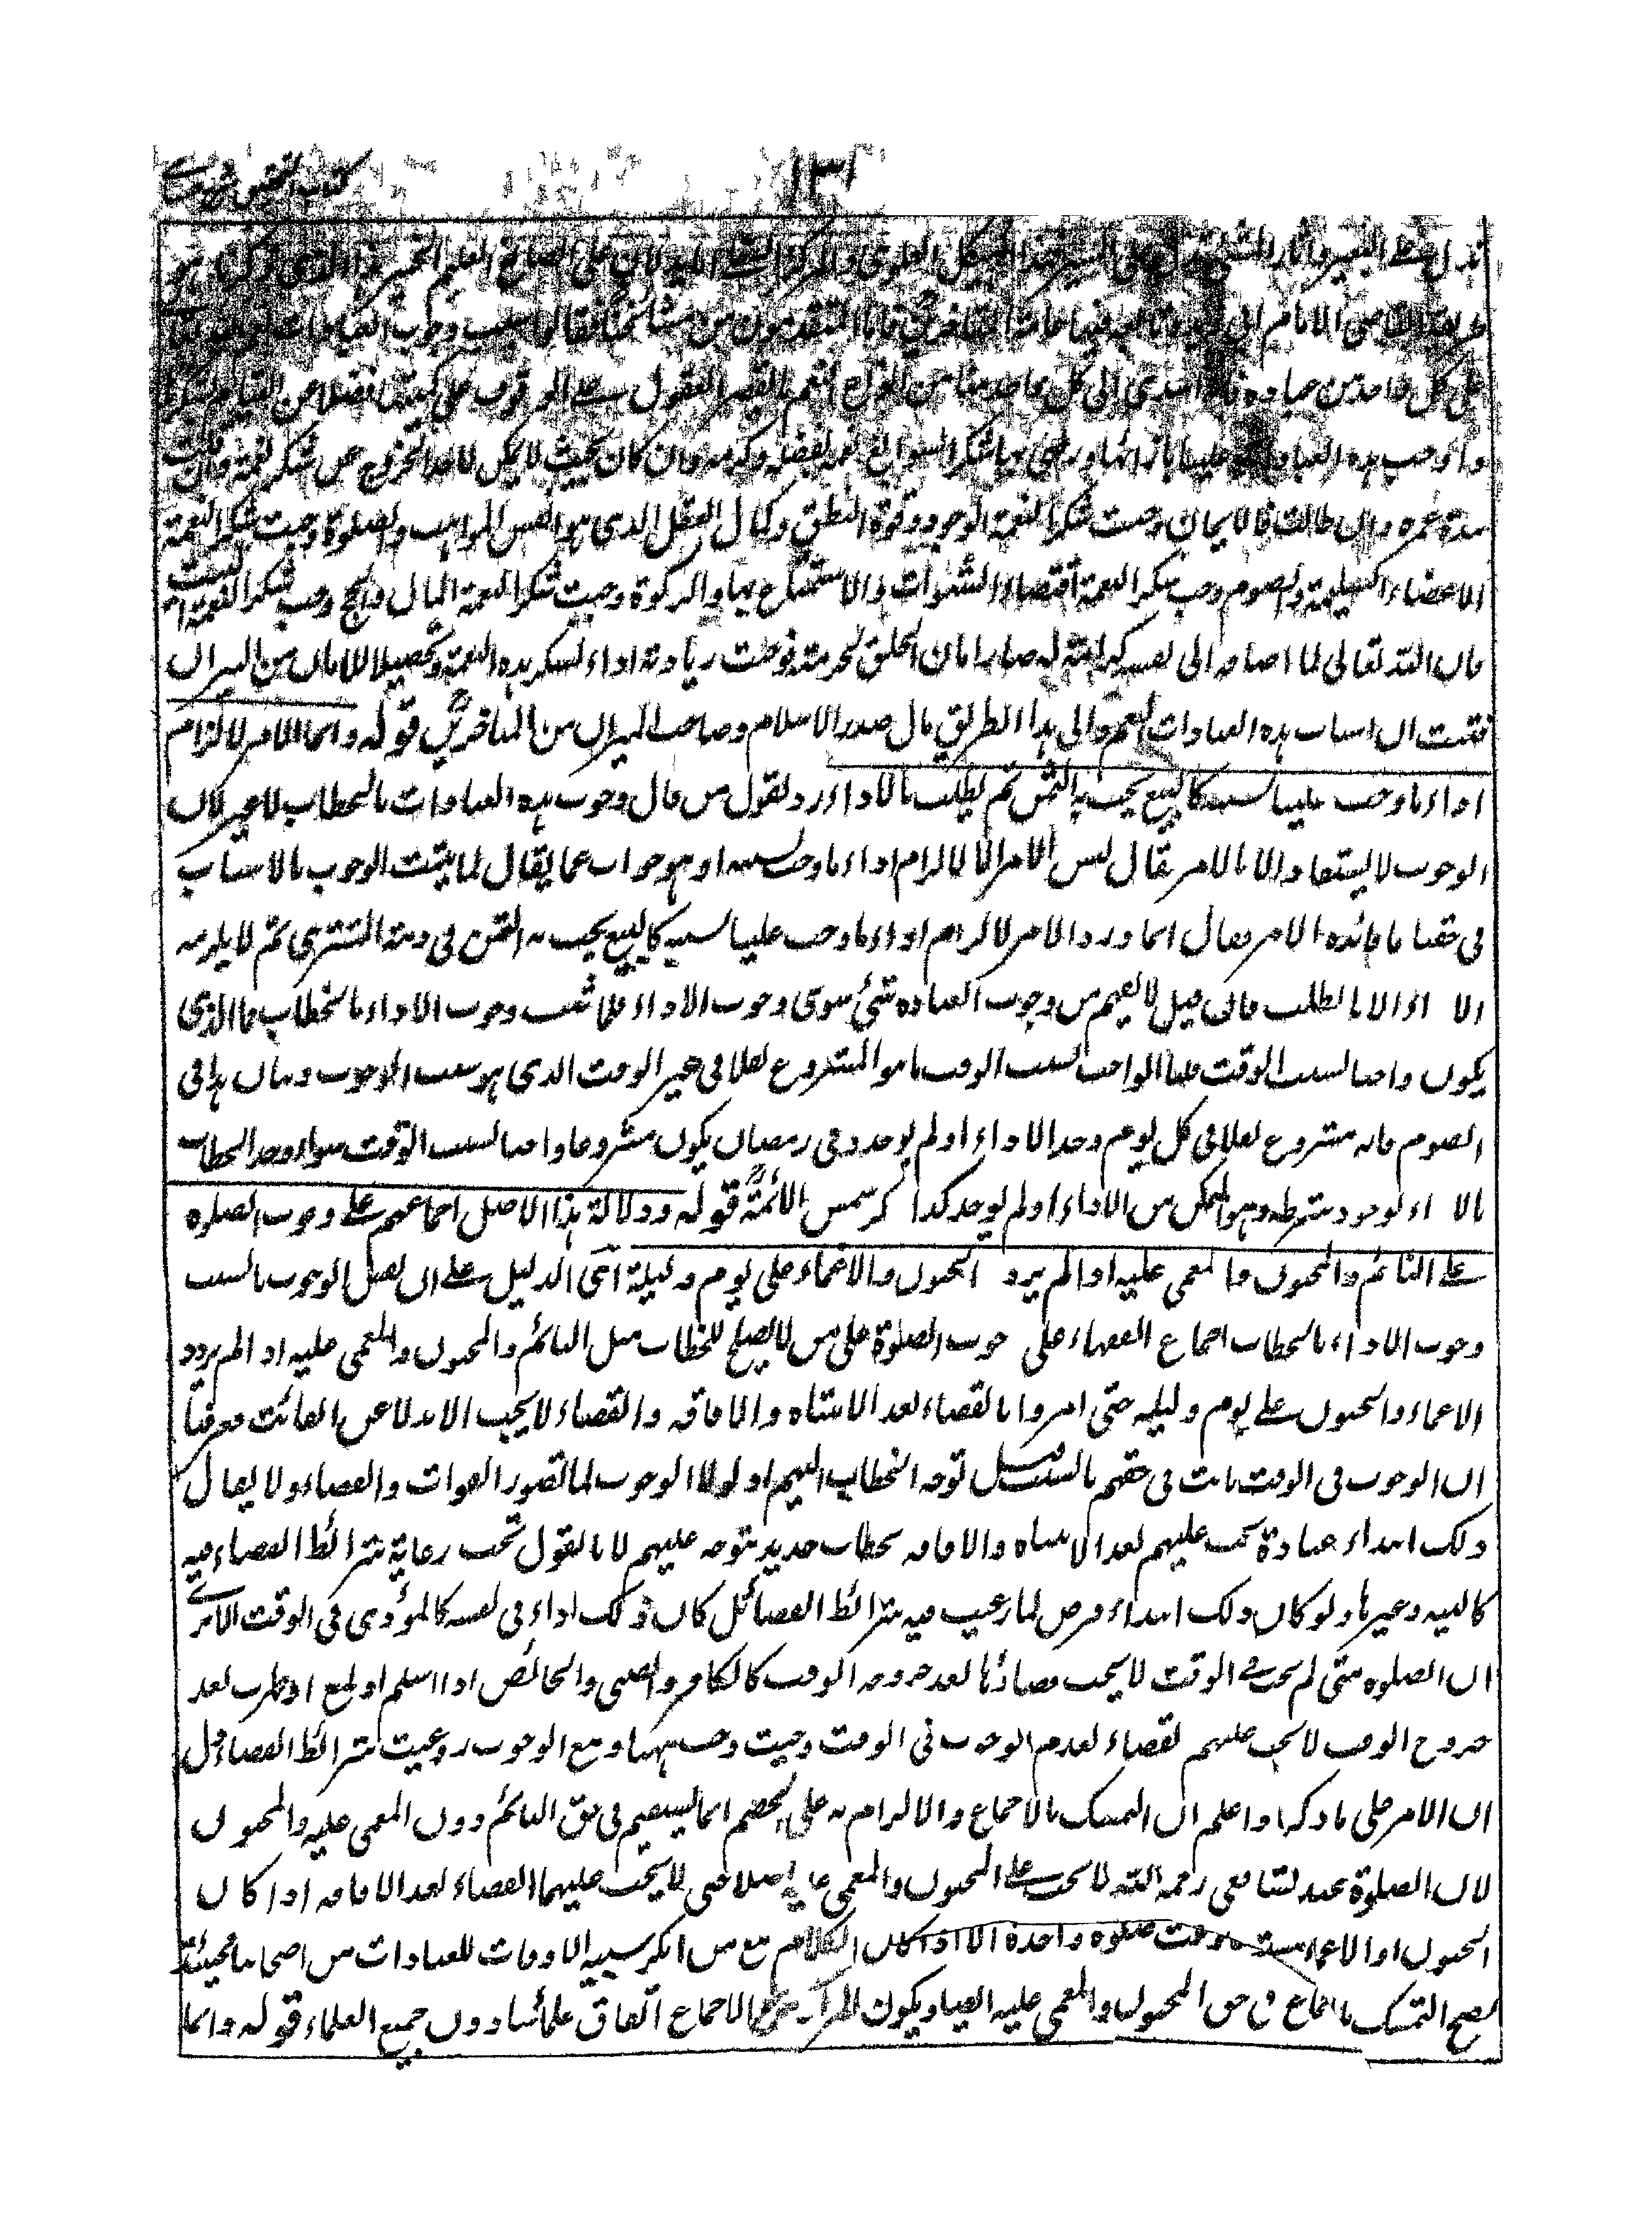 ١٣١
كتاب التحقيق شرح حسامي
تدل على البعير وآثار المشي تدل على المسير فهذا الهيكل العلوي والمركز السفلي أما يدلان على الصانع العليم الخبير
القاضي الامام ابي زيد فاما المتقدمون من مشائخنا فقالوا سبب وجوب العبادات
على كل واحد من عباده فانه اسدى الى كل واحد منا من انواع النعم ما يقصر العقول على الوقوف على كنهها فضلا عن القيام بشكرها
واوجب هذه العبادات علينا بازائها ورضي بها شكرا لسوابغ نعمه بفضله وكرمه وان كان بحيث لا يمكن لاحد الخروج عن شكر نعمة وان قلت
مدة عمره وان طالت فالايمان وجبت شكرا لنعمة الوجود وقوة النطق وكمال العقل الذي هو انفس المواهب والصلوة وجبت شكرا لنعمة
الاعضاء السليمة والصوم وجب شكرا لنعمة اقتضاء الشهوات والاستمتاع بها والزكوة وجبت شكرا لنعمة المال والحج وجب شكرا لنعمة البيت
فان الله تعالى لما اضافه الى نفسه كرامة له صار امان الخلق لحرمته فوجبت زيارته اداء لشكر هذه النعمة وتحصيلا للامان من النيران
فثبت ان اسباب هذه العبادات النعم والى هذا الطريق مال صدر الاسلام وصاحب الميزان من المتاخرين قوله وانما الامر لالزام
اداء ما وجب علينا بسببه كالبيع يجب به الثمن ثم يطلب بالاداء رد لقول من قال وجوب هذه العبادات بالخطاب لا غير لان
الوجوب لا يستفاد الا بالامر فقال ليس الامر الا لالزام اداء ما وجب بسببه او هو جواب عما يقال لما يثبت الوجوب بالاسباب
في حقنا ما فائدة الامر فقال انما ورد الامر لالزام اداء ما وجب علينا بسببه كالبيع يجب به الثمن في ذمة المشتري ثم لا يلزمه
الاداء الا بالطلب فان قيل لا يفهم من وجوب العبادة شئ سوى وجوب الاداء فلما ثبت وجوب الاداء بالخطاب فما الذي
يكون واجبا بسبب الوقت قلنا الواجب بسبب الوقت ما هو المشروع نفلا في غير الوقت الذي هو سبب الوجوب وبيان هذا في
الصوم فانه مشروع نفلا في كل يوم وجد الاداء او لم يوجد وفي رمضان يكون مشروعا واجبا بسبب الوقت سواء وجد الخطاب
بالاداء لوجود شرطه وهو التمكن من الاداء او لم يوجد كذا ذكر شمس الائمة قوله ودلالة هذا الاصل اجماعهم على وجوب الصلوة
على النائم والمجنون والمغمى عليه اذا لم يزدد الجنون والاغماء على يوم وليلة اي الدليل على ان نفس الوجوب بالسبب
وجوب الاداء بالخطاب اجماع الفقهاء على وجوب الصلوة على من لا يصلح للخطاب مثل النائم والمجنون والمغمى عليه اذا لم يزدد
الاغماء والجنون على يوم وليلة حتى امروا بالقضاء بعد الانتباه والافاقة والقضاء لا يجب الا بدلا عن الفائت فعرفنا
ان الوجوب في الوقت ثابت في حقهم بالسبب قبل توجه الخطاب اليهم اذ لولا الوجوب لما تصور الفوات والقضاء ولا يقال
ذلك ابتداء عبادة تجب عليهم بعد الانتباه والافاقة بخطاب جديد يتوجه عليهم لانا نقول تجب رعاية شرائط القضاء فيه
كالنية وغيرها ولو كان ذلك ابتداء فرض لما رعيت فيه شرائط القضاء بل كان ذلك اداء في نفسه كالمؤدى في الوقت الا ترى
ان الصلوة متى لم تجب في الوقت لا يجب قضاؤها بعد خروجه الوقت كالكافر والصبي والحائض اذا اسلم او بلغ او طهرت بعد
خروج الوقت لا يجب عليهم القضاء لعدم الوجوب في الوقت وحيث وجب ههنا ومع الوجوب روعيت شرائط القضاء دل
ان الامر على ما ذكرنا واعلم ان التمسك بالاجماع والالزام به على الخصم انما يستقيم في حق النائم دون المغمى عليه والمجنون
لان الصلوة عند الشافعي رحمه الله لا تجب على المجنون والمغمى عليه اصلا حتى لا يجب عليهما القضاء بعد الافاقة اذا كان
الجنون او الاغماء مستوعب وقت صلوة واحدة الا اذا كان الكلام مع من انكر سببية الاوقات للعبادات من اصحابنا فحينئذ
يصح التمسك بالاجماع في حق المجنون والمغمى عليه ايضا ويكون المراد من الاجماع اتفاق علمائنا دون جميع العلماء قوله وانما